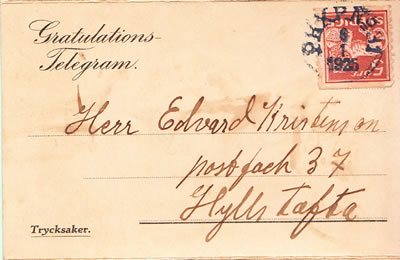 Gratulations-
Telegram.
9
1
1935
Herr Edvard Kristenson
postfach 37
Hyllstafta
Trycksaker.